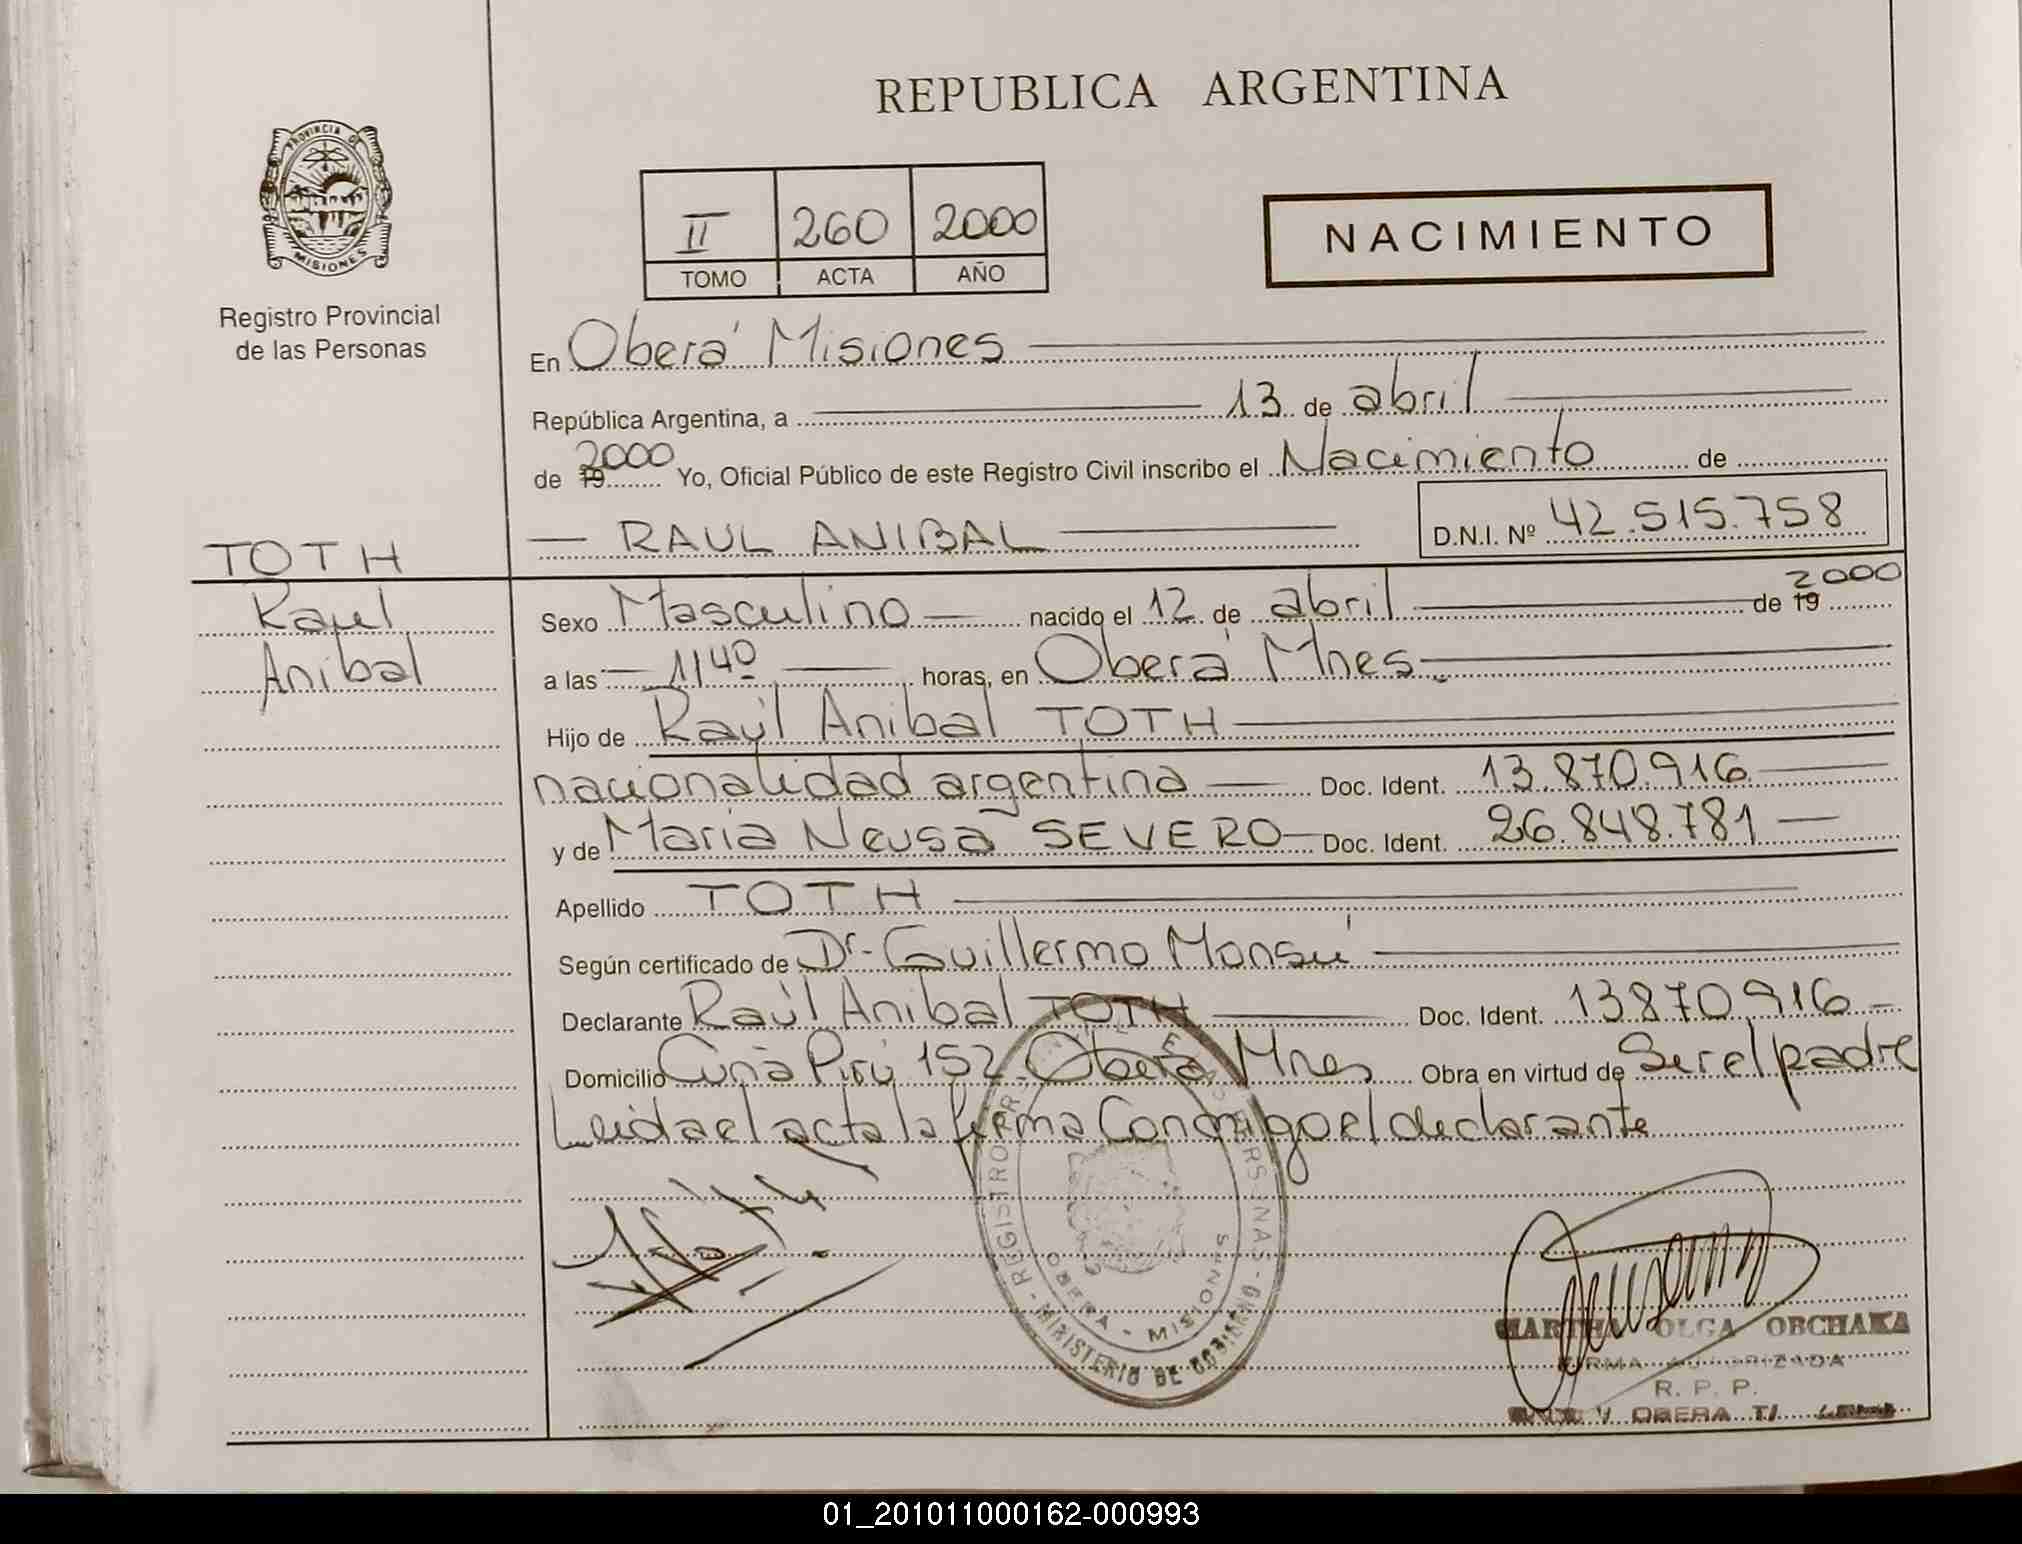 REPUBLICA ARGENTINA
PROVINCIA DE
MISIONES
Registro Provincial
de las Personas
II 260 2000
TOMO ACTA AÑO
NACIMIENTO
En Oberá Misiones
República Argentina, a 13 de abril
de 19 2000 Yo, Oficial Público de este Registro Civil inscribo el Nacimiento de
RAUL ANIBAL D.N.I. Nº 42.515.758
TOTH
Raul
Anibal
Sexo Masculino nacido el 12 de abril de 19 2000
a las 1140 horas, en Oberá Mnes.
Hijo de Raúl Anibal TOTH
nacionalidad argentina Doc. Ident. 13.870.916
y de Maria Neusa SEVERO Doc. Ident. 26.848.781
Apellido TOTH
Según certificado de Dr. Guillermo Monsú
Declarante Raúl Anibal TOTH Doc. Ident. 13870916
Domicilio Cuña Pirú 152 Oberá Mnes Obra en virtud de Ser el padre
Leida el acta la firma Conmigo el declarante
REGISTRO PERSONAS
MINISTERIO DE GOBIERNO
OBERA - MISIONES
MARTHA OLGA OBCHAKA
FIRMA AUTORIZADA
R. P. P.
OBERA
01_201011000162-000993